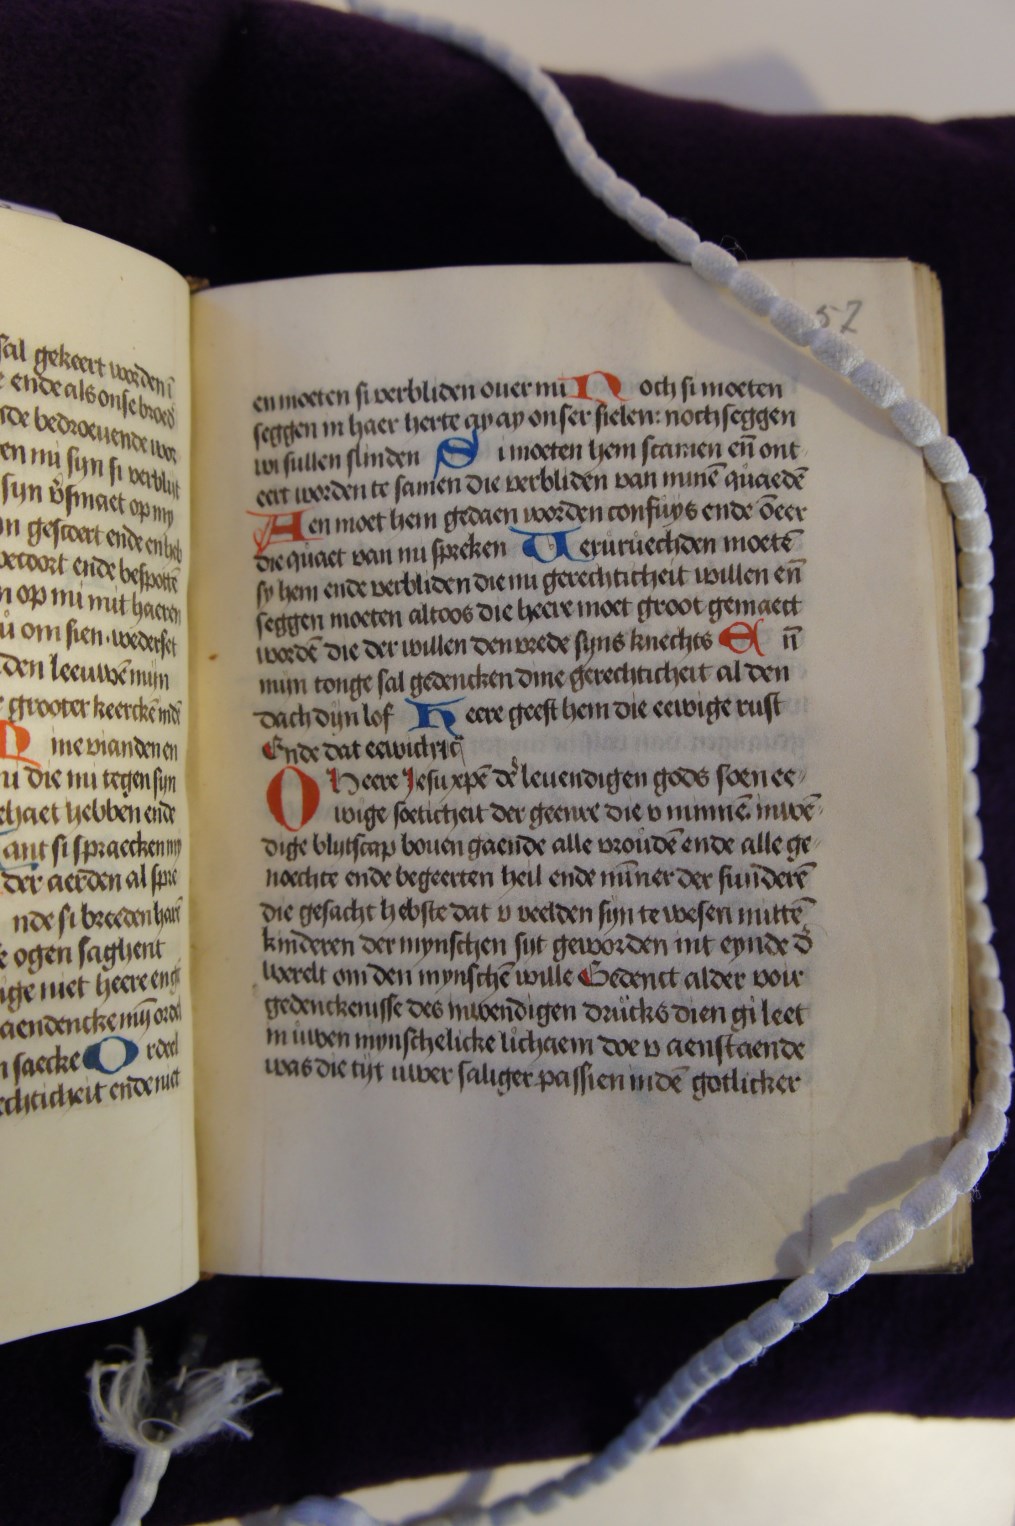 sal gekeert worden i
ende als onse broed
rde bedroeuende wor
en mi syn si verblijt
syn v̄smaet op my
n gescoert ende en heb
becoort ende bespotte
n op mi mit haeren
u om sien wederset
den leeuwē mijn
grooter keercke
R ine vianden en
u die mi tegen syn
ehaet hebben ende
ant si spraecken my
der aerden al spre
nde si breeden harē
e ogen saghent
ige niet heere en
aendencke myn ordel
n saecke O rdeel
echticheit ende niet
57
en moeten si verbliden ouer mi N och si moeten
seggen in haer herte ay ay onser sielen: noch seggen
wi sullen slinden S i moeten hem scamen en̄ ont
eert worden te samen die verbliden van minē quaedē
A en moet hem gedaen worden confuys ende ōeer
die quaet van mi spreken V erurüechden moetē
sy hem ende verbliden die mi gerechticheit willen en̄
seggen moeten altoos die heere moet groot gemaect
wordē die der willen den vrede syns knechts E n̄
mijn tonge sal gedencken dine gerechticheit al den
dach dijn lof H eere geeft hem die eewige rust
Ende dat eewich
O Heere Jesu xpē des leuendigen gods soen ee
wige soeticheit der geenre die v minnē inwē
dige blijtscap bouen gaende alle vroudē ende alle ge
noechte ende begeerten heil ende mīner der sunderē
die gesacht hebste dat v weelden sijn te wesen mittē
kinderen der mynschen sijt geworden int eynde d̄
werelt om den mynschē wille Gedenct alder voir
gedenckenisse des inwendigen drucks dien gi leet
in uwen mynschelicke lichaem doe v aenstaende
was die tijt uwer saliger passien in dē gotlicker